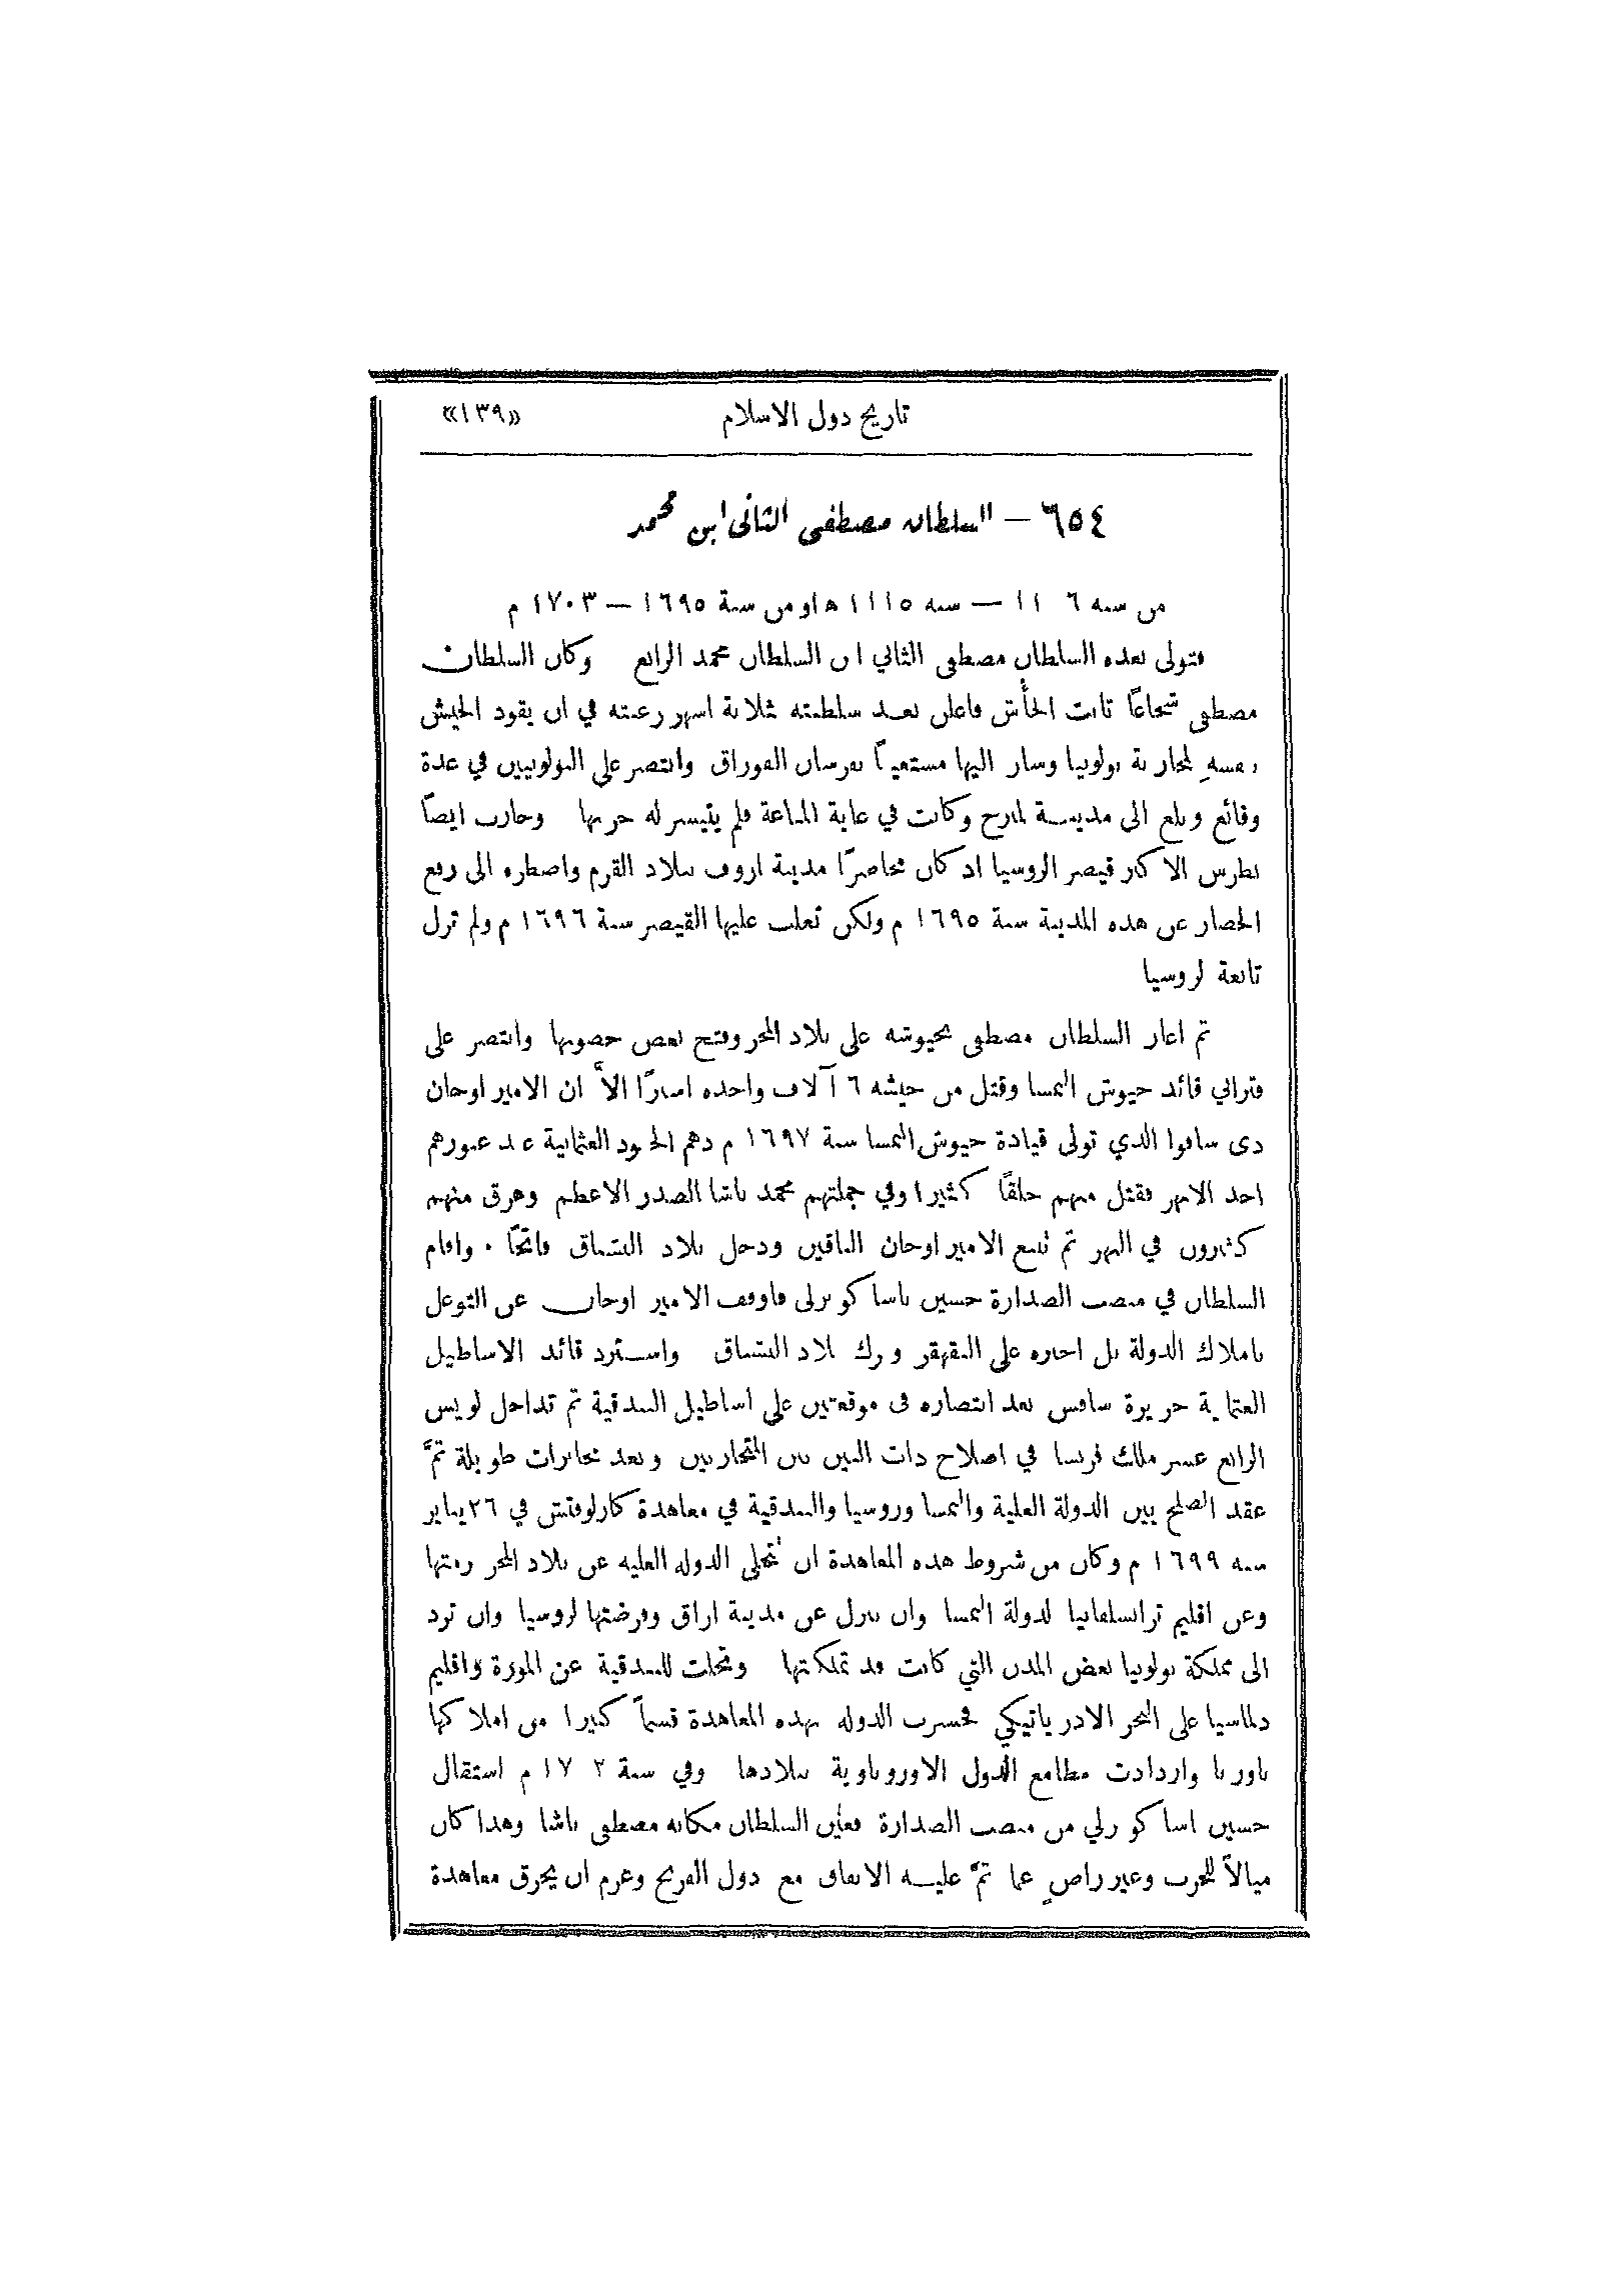 تاريخ دول الاسلام «١٣٩»
٦٥٤ — السلطان مصطفى الثاني ابن محمد
من سنه ١١٠٦ — سنه ١١١٥ ه او من سنة ١٦٩٥ — ١٧٠٣ م
فتولى بعده السلطان مصطفى الثاني ابن السلطان محمد الرابع وكان السلطان
مصطفى شجاعًا ثابت الجأش فاعلن بعد سلطنته بثلاثة اشهر رغبته في ان يقود الجيش
بنفسهِ لمحاربة بولونيا وسار اليها مستعينًا بفرسان القوزاق وانتصر على البولونيين في عدة
وقائع وبلغ الى مدينة لمبرج وكانت في غاية المناعة فلم يتيسر له حربها وحارب ايضًا
بطرس الاكبر قيصر الروسيا اذ كان محاصرًا مدينة ازوف ببلاد القرم واضطره الى رفع
الحصار عن هذه المدينة سنة ١٦٩٥ م ولكن تغلب عليها القيصر سنة ١٦٩٦ م ولم تزل
تابعة لروسيا
ثم اغار السلطان مصطفى بجيوشه على بلاد المجر وفتح بعض حصونها وانتصر على
فتراني قائد جيوش النمسا وقتل من جيشه ٦ آلاف واخذه اسيرًا الاَّ ان الامير اوجان
دى سافوا الذي تولى قيادة جيوش النمسا سنة ١٦٩٧ م دهم الجنود العثمانية عند عبورهم
احد الانهر فقتل منهم خلقًا كثيرا وفي جملتهم محمد باشا الصدر الاعظم وغرق منهم
كثيرون في النهر ثم تبع الامير اوجان الباقين ودخل بلاد البشناق فاتحًا . واقام
السلطان في منصب الصدارة حسين باشا كوبرلى فاوقف الامير اوجان عن التوغل
باملاك الدولة بل اجبره على التقهقر وترك بلاد البشناق واسترد قائد الاساطيل
العثمانية جزيرة ساقس بعد انتصاره في موقعتين على اساطيل البندقية ثم تداخل لويس
الرابع عشر ملك فرنسا في اصلاح ذات البين بين المتحاربين وبعد مخابرات طويلة تمَّ
عقد الصلح بين الدولة العلية والنمسا وروسيا والبندقية في معاهدة كارلوفتس في ٢٦ يناير
سنه ١٦٩٩ م وكان من شروط هذه المعاهدة ان تتخلى الدوله العليه عن بلاد المجر برمتها
وعن اقليم ترانسلفانيا لدولة النمسا وان تنزل عن مدينة ازاق وفرضتها لروسيا وان ترد
الى مملكة بولونيا بعض المدن التي كانت قد تملكتها وتخلت للبندقية عن المورة واقليم
دلماسيا على البحر الادرياتيكي فخسرت الدوله بهذه المعاهدة قسماً كبيرا من املاكها
باوربا وازدادت مطامع الدول الاوروباوية ببلادها وفي سنة ١٧٠٢ م استقال
حسين باشا كوبرلي من منصب الصدارة فعيَّن السلطان مكانه مصطفى باشا وهذا كان
ميالاً للحرب وغير راضٍ عما تمَّ عليه الاتفاق مع دول الفرنج وعزم ان يخرق معاهدة